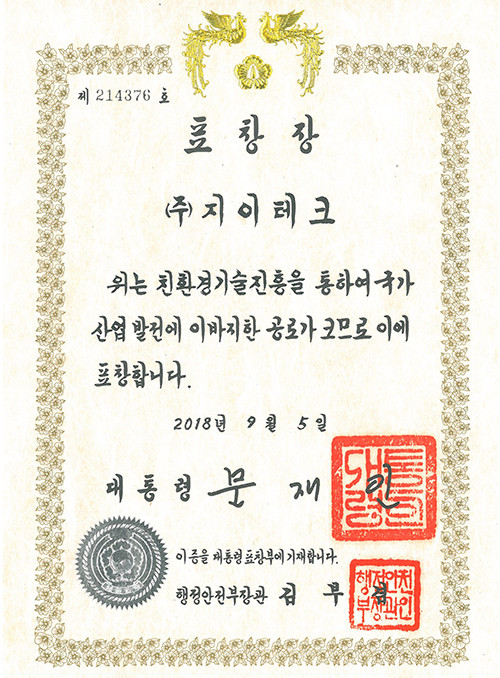 제 214376 호
표 창 장
㈜지이테크
위는 친환경기술진흥을 통하여 국가
산업발전에 이바지한 공로가 크므로 이에
표창합니다.
2018년 9월 5일
대통령 문 재 인
이 증을 대통령표창부에 기재합니다.
행정안전부장관 김 부 겸